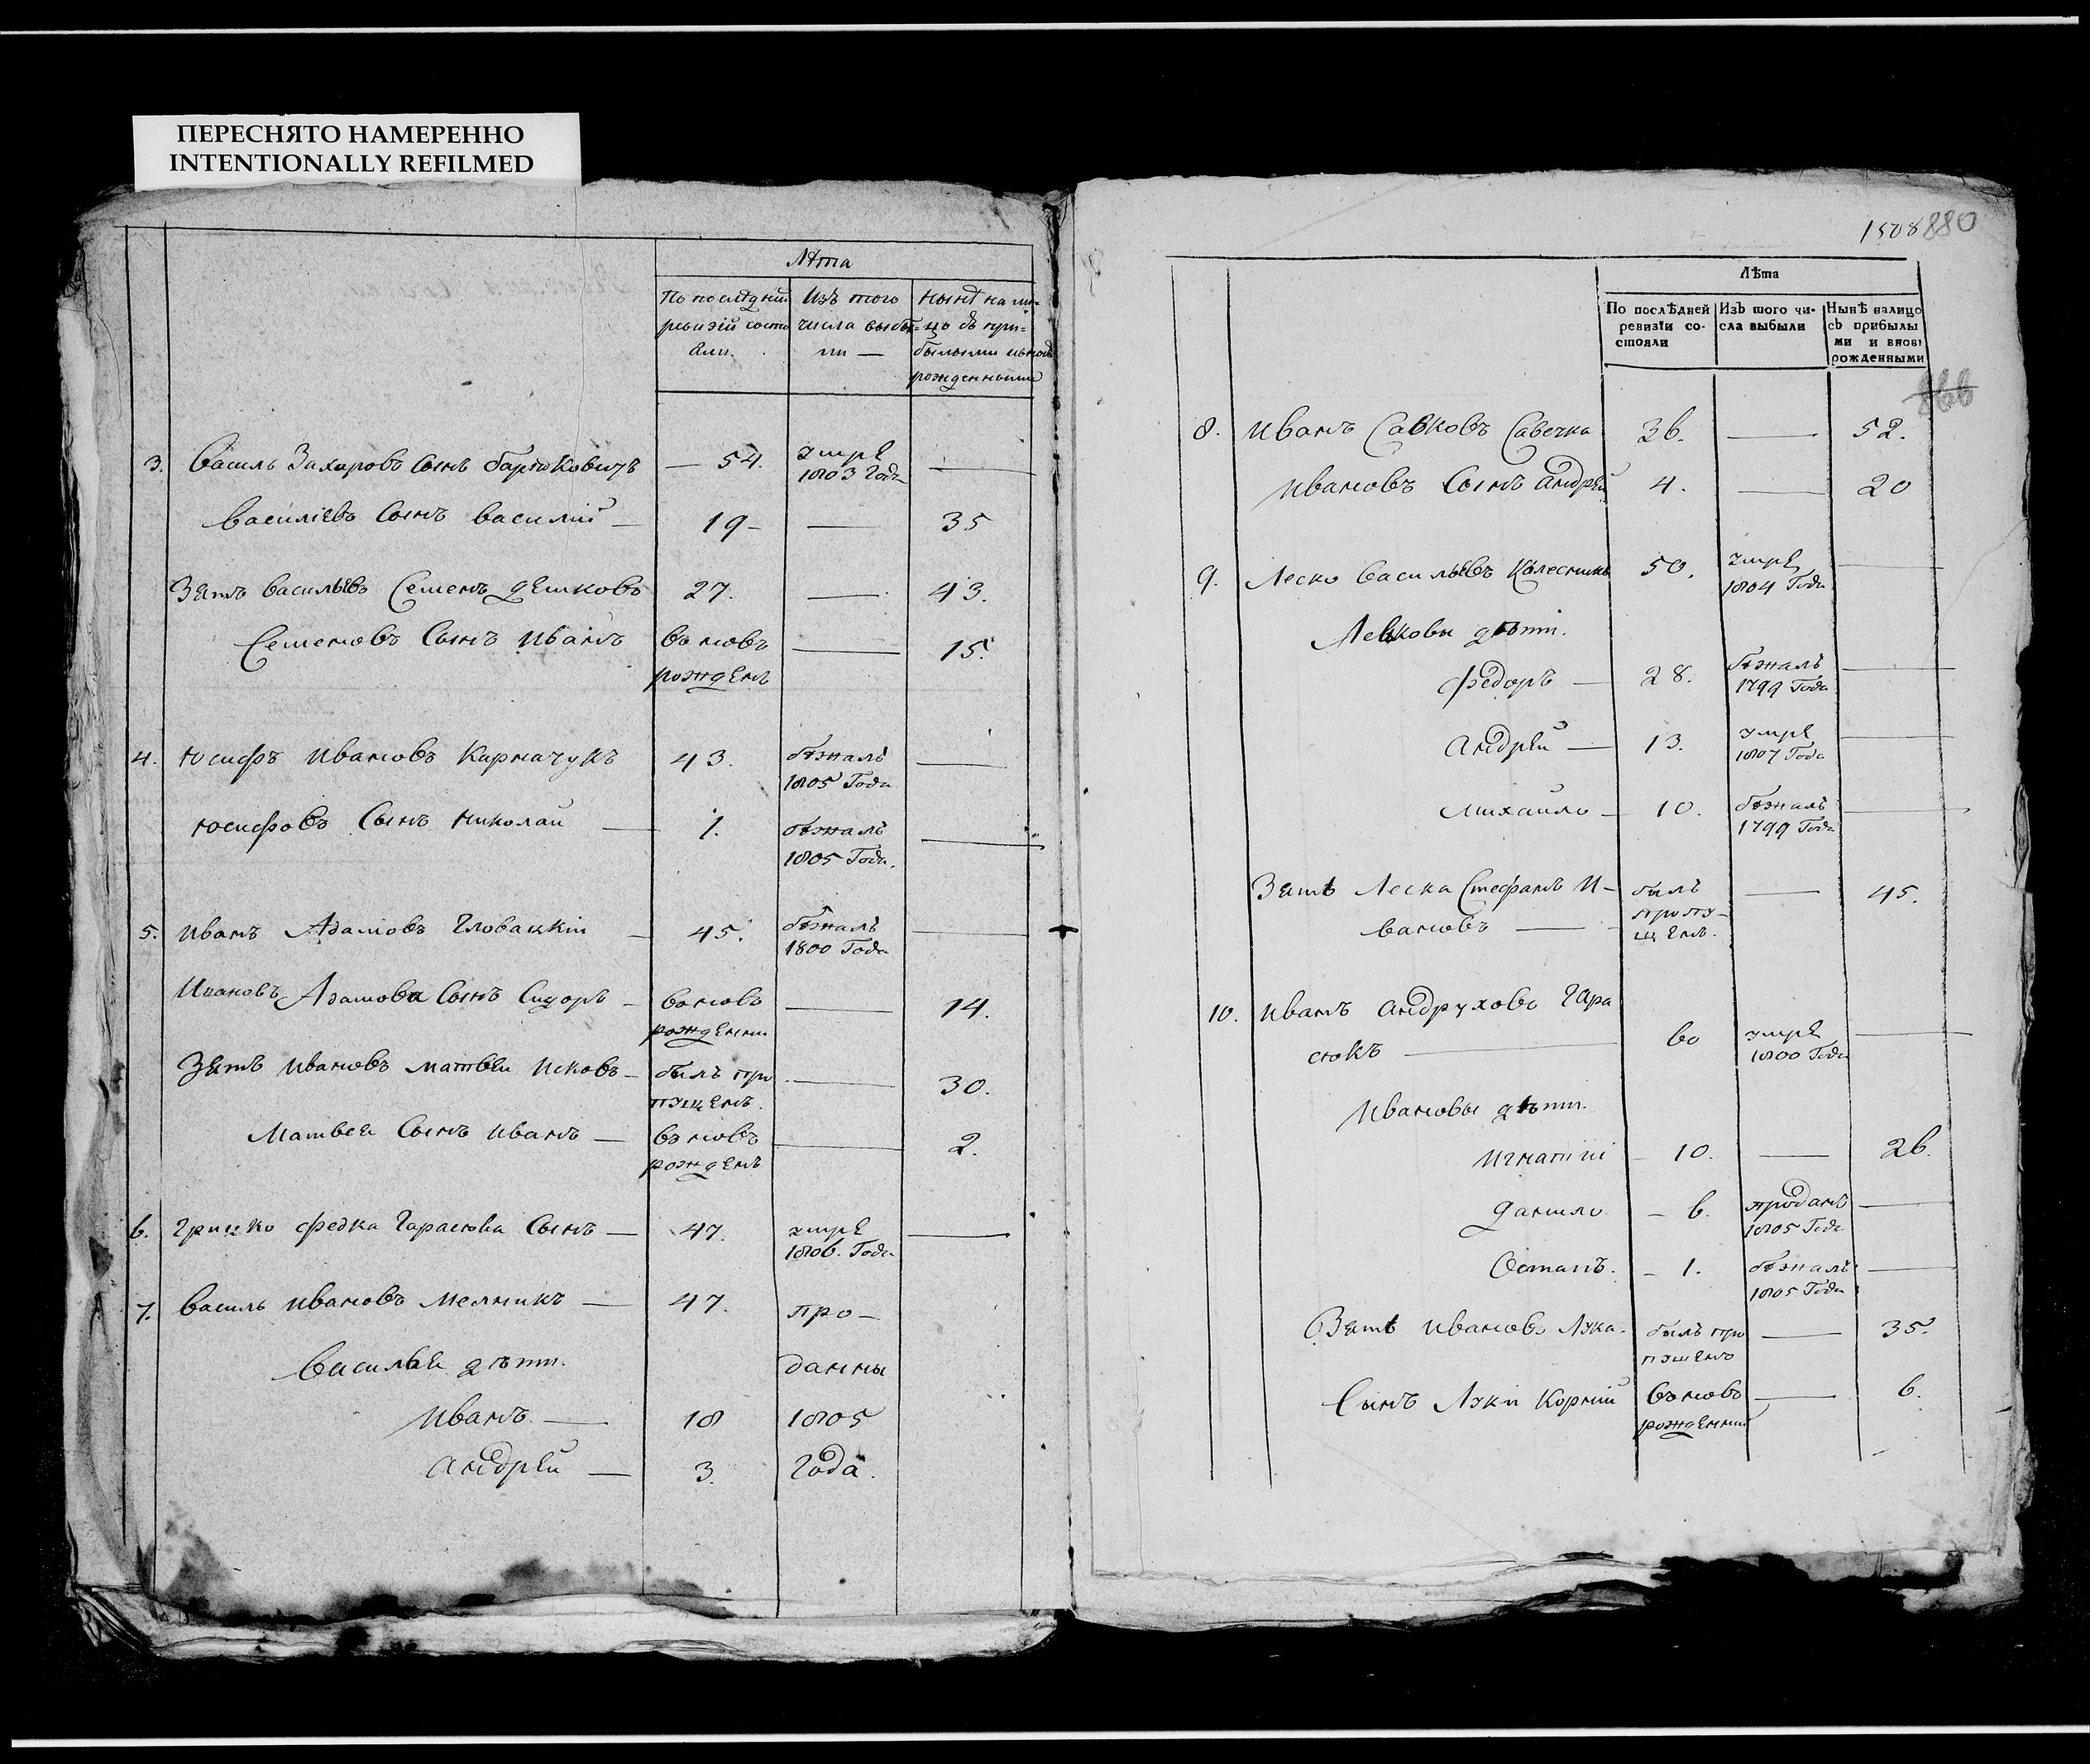 ПЕРЕСНЯТО НАМЕРЕННО
INTENTIONALLY REFILMED
Лѣта
По послѣдней ревизіи состо яли. Изъ того числа выбы ли — Нынѣ на ли= цо съ при= былыми и вновь рожденными
3. Василь Захаровъ Сынъ — 54. умре
1803 Года —
Василіевъ Сынъ Василій — 19 — — 35
Зять Васильевъ Семенъ Дешковъ 27. — 43.
Семеновъ Сынъ Иванъ вновь — 15.
рожденъ
4. Юсифъ Ивановъ Кирначукъ 43. бѣжалъ —
1805 Года
Юсифовъ Сынъ Николай — 1. бѣжалъ —
1805 Года.
5. Иванъ Адамовъ Гловацкій — 45. бѣжалъ —
1800 Года
Ивановъ Адамова Сынъ Сидоръ — вновь — 14.
рожденны
Зять Ивановъ Матвей Исковъ — былъ про — 30.
пущенъ.
Матвея Сынъ Иванъ — вновь — 2.
рожденъ
6. Грицко Федка Гарасюка Сынъ — 47. умре —
1806. Года
7. Василь Ивановъ Мелникъ — 47. про—
Василья дѣти. данны
Иванъ — 18 1805
Андрей — 3. Года.
1508 880
Лѣта
По послѣдней Изъ того чи- Нынѣ налицо
ревизіи со- сла выбыли съ прибылы
стояли ми и внов
рожденными
866
8. Иванъ Савковъ Савечка 36. — 52.
Ивановъ Сынъ Андрей 4. — 20
9. Леско Васильевъ Колесникъ 50. умре —
1804 Года
Левковы дѣти.
Федоръ — 28. бѣжалъ —
1799 Года
Андрей — 13. умре —
1807 Года
Михайло — 10. бѣжалъ —
1799 Года
Зять Леска Стефанъ И- былъ — 45.
вановъ — пропу-
щенъ.
10. Иванъ Андруховъ Гара
сюкъ — 60 умре —
1800 Года
Ивановы дѣти.
Игнатій — 10. — 26.
Данило — 6. проданъ —
1805 Года
Остапъ. — 1. бѣжалъ —
1805 Года
Зять Ивановъ Лука. былъ про — 35.
пущенъ
Сынъ Луки Корній вновь — 6.
рожденный